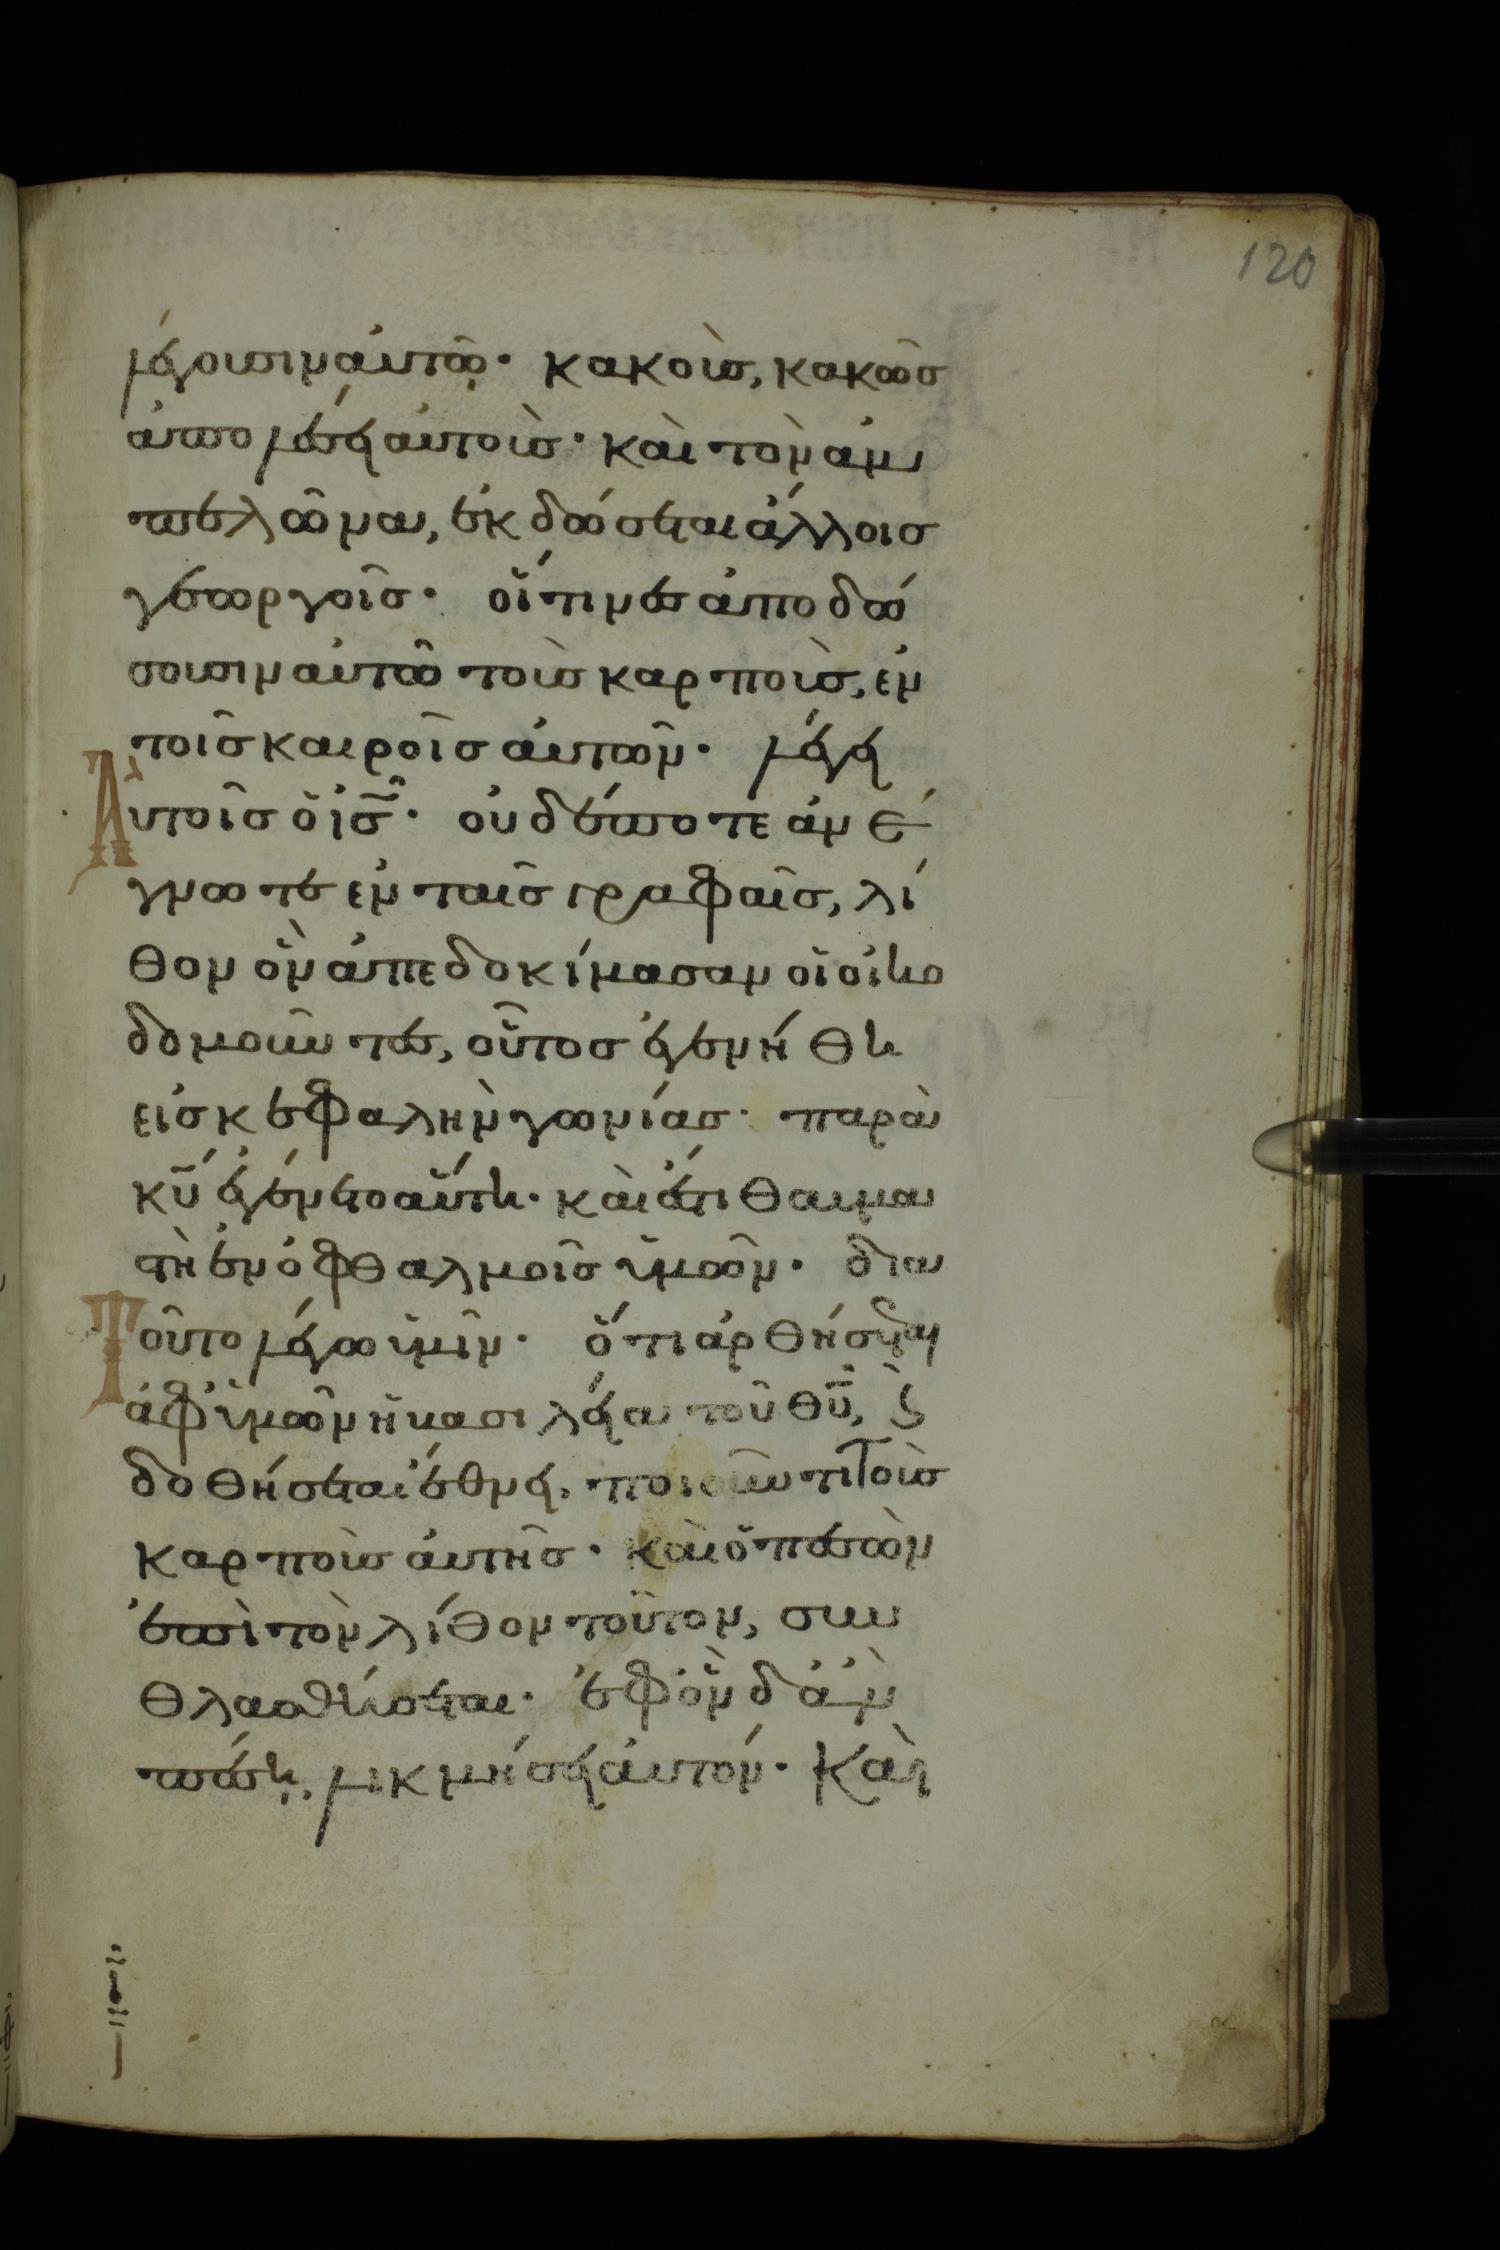 120
λέγουσιν αὐτῶ· κακοὺς, κακῶς
ἀπολέσει αὐτούς· καὶ τὸν ἀμ
πελῶνα, ἐκδώσεται ἄλλοις
γεωργοῖς· οἵτινες ἀποδώ
σουσιν αὐτῶ τοὺς καρποὺς, ἐν
τοῖς καιροῖς αὐτῶν· λέγει
Αὐτοῖς ὁ ις· οὐδέποτε ἀνέ
γνωτε ἐν ταῖς γραφαῖς, λί
θον ὃν ἀπεδοκίμασαν οἱ οἰκο
δομοῦντες, οὗτος ἐγενήθη
εἰς κεφαλὴν γωνίας· παρὰ
κυ ἐγένετο αὕτη· καὶ ἔστι θαυμα
στὴ ἐν ὀφθαλμοῖς ὑμῶν· δια
Τοῦτο λέγω ὑμῖν· ὅτι ἀρθήσεται
ἀφ ὑμῶν ἡ βασιλεία τοῦ θυ, ϗ
δοθήσεται ἔθνει, ποιοῦντι τοὺς
καρποὺς αὐτῆς· καὶ ὁ πεσὼν
ἐπὶ τὸν λίθον τοῦτον, συν
θλασθήσεται· ἐφ ὃν δ ἂν
πέση, λικμήσει αὐτόν· Καὶ